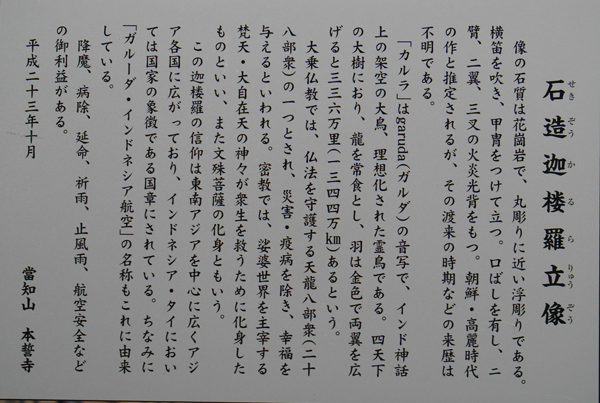 石造迦楼羅立像
せきぞうかるらりゅうぞう
像の石質は花崗岩で、丸彫りに近い浮彫りである。
横笛を吹き、甲冑をつけて立つ。口ばしを有し、二
臂、二翼、三叉の火炎光背をもつ。朝鮮・高麗時代
の作と推定されるが、その渡来の時期などの来歴は
不明である。
「カルラ」はgaruda(ガルダ)の音写で、インド神話
上の架空の大鳥、理想化された霊鳥である。四天下
の大樹におり、龍を常食とし、羽は金色で両翼を広
げると三三六万里(一三四四万㎞)あるという。
大乗仏教では、仏法を守護する天龍八部衆(二十
八部衆)の一つとされ、災害・疫病を除き、幸福を
与えるといわれる。密教では、娑婆世界を主宰する
梵天・大自在天の神々が衆生を救うために化身した
ものといい、また文殊菩薩の化身ともいう。
この迦楼羅の信仰は東南アジアを中心に広くアジ
ア各国に広がっており、インドネシア・タイにおい
ては国家の象徴である国章にされている。ちなみに
「ガルーダ・インドネシア航空」の名称もこれに由来
している。
降魔、病除、延命、祈雨、止風雨、航空安全など
の御利益がある。
平成二十三年十月
當知山 本誓寺